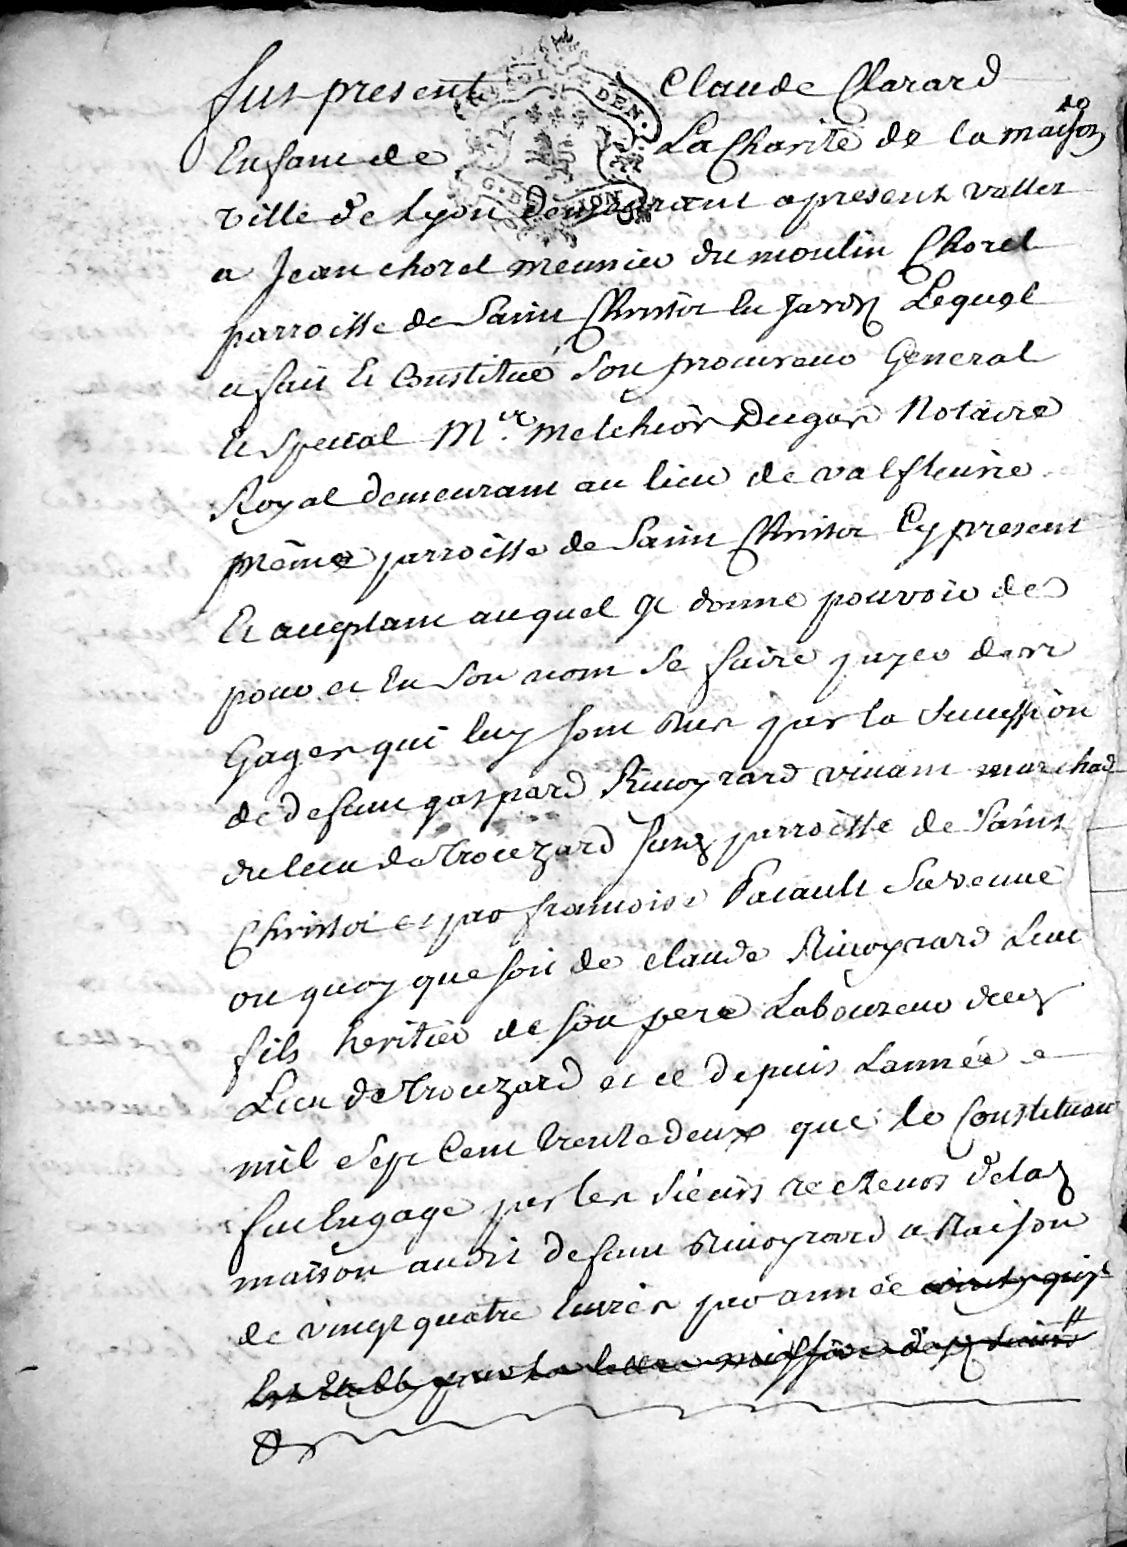 fut present Claude Clarard
Enfant de La Charité de la maison
ville de Lyon demeurant apresent vallet
a Jean chorel meunier du moulin Chorel
parroisse de Saint Christot en Jarez Lequel
a fait Et Constitué son procureur General
Et special Mr. Melchior Dugas Notaire
Royal demeurant au lieu de valfleurie
même parroisse de Saint Christot Cy present
Et acceptant auquel il donne pouvoir de
pour et En son nom se faire payer des
Gages qui luy sont dus par la succession
de defunt gaspard Rivoyrard vivant marchad
du lieu de Trouzard susd parroisse de Saint
Christot et par francoise Pacault sa veuve
ou quoy que soit de claude Rivoyrard Leur
fils heritier de son pere Laboureur dud
Lieu de Trouzard et ce depuis L'année
mil sept Cent trente deux que le Constituant
fut Engagé par les sieurs recteurs de lad
maison audit defunt Rivoyrard a Raison
de vingt quatre livres par année ainsy qu'il
Est Etably par la lettre missive desd sieurs